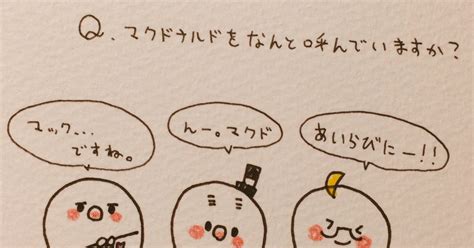 Q. マクドナルドをなんと呼んでいますか?
マック...
ですね。
んー。マクド
あいらびにー!!